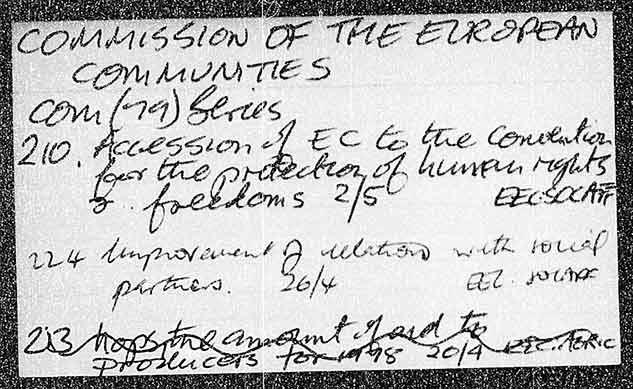 COMMISSION OF THE EUROPEAN
COMMUNITIES
COM (79) Series
210. Accession of EC to the Convention
for the protection of human rights
& freedoms 2/5 EEC.SOCAFF
224 Improvement of relations with social
partners. 26/4 EEC. SOCAFF
213 hops the amount of aid to
producers for 1978 20/4 EEC.AGRIC